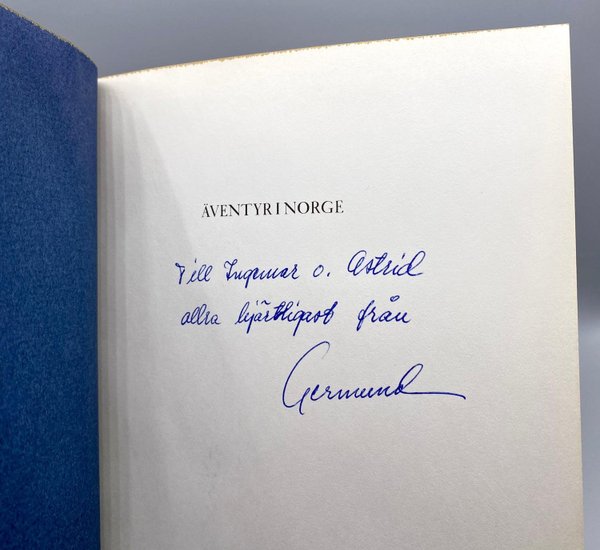 ÄVENTYR I NORGE
Till Ingmar o. Astrid
allra hjärtligast från
Germund